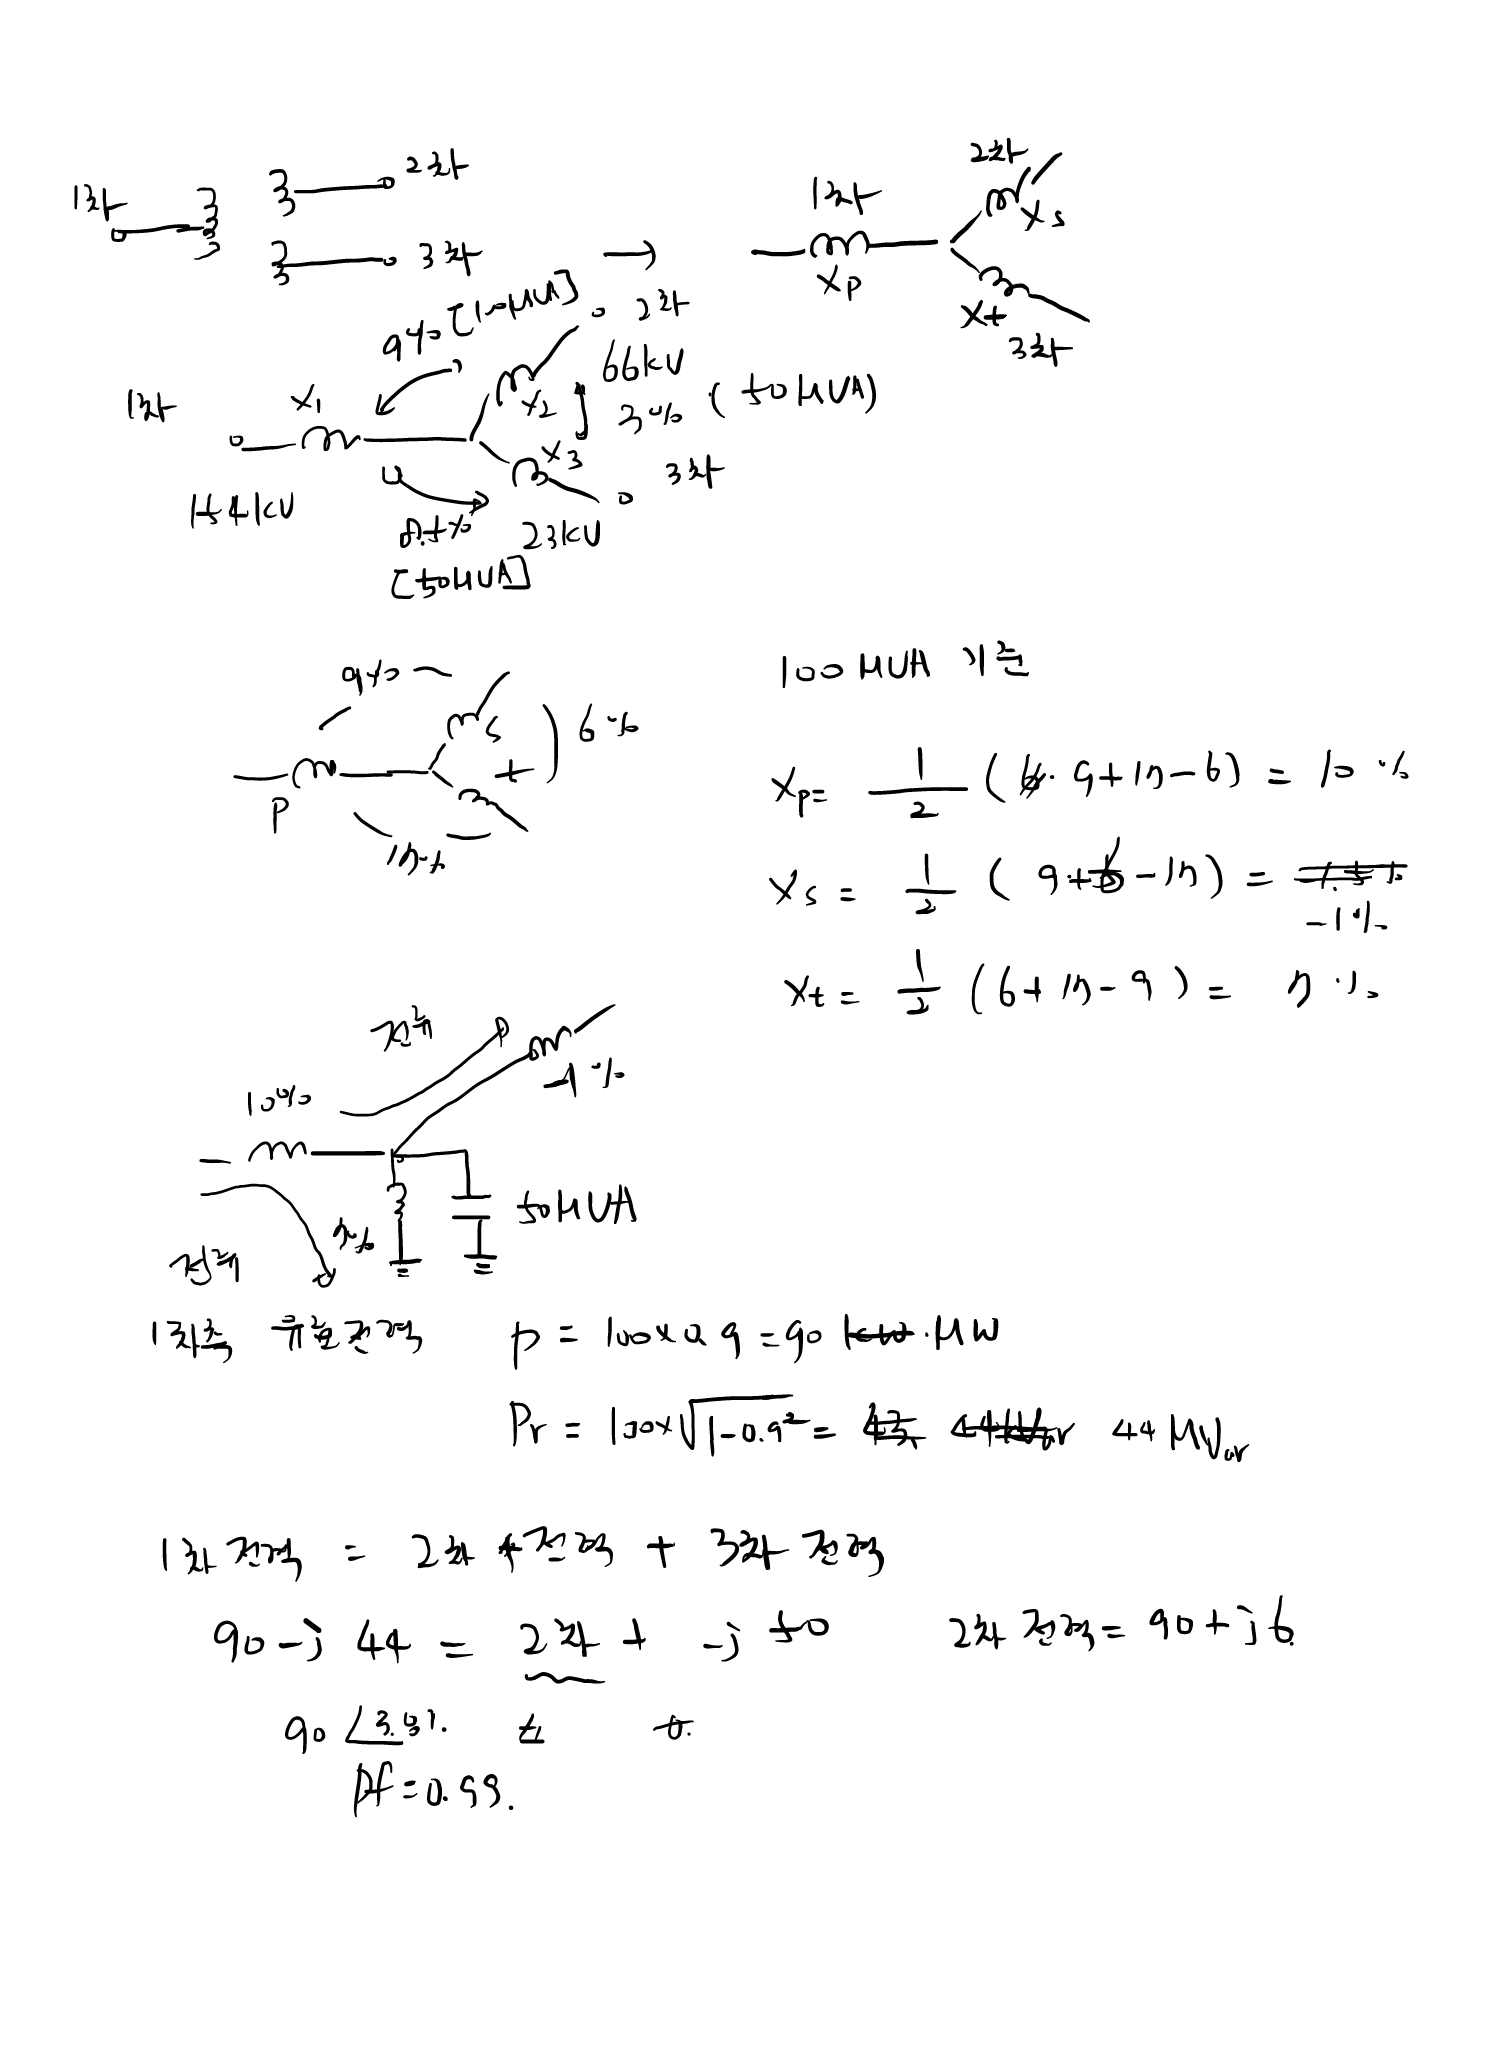 1차
2차
3차
1차
2차
3차
Xp
Xs
Xt
9% [100MVA]
2차
66kV
1차
X1
X2
3% (50MVA)
X3
3차
154kV
8.5%
23kV
[50MVA]
9%
s
6%
p
t
17%
100 MVA 기준
Xp = 1/2 (9+17-6) = 10 %
Xs = 1/2 (9+6-17) = -1%
Xt = 1/2 (6+17-9) = 7 %
전류
10%
-1%
7%
50MVA
전류
1차측 유효전력 P = 100x0.9 = 90 MW
Pr = 100x√1-0.9² = 44 MVar
1차 전력 = 2차 전력 + 3차 전력
90-j 44 = 2차 + -j 50
2차 전력 = 90+j6
90∠3.81.
Pf=0.99.